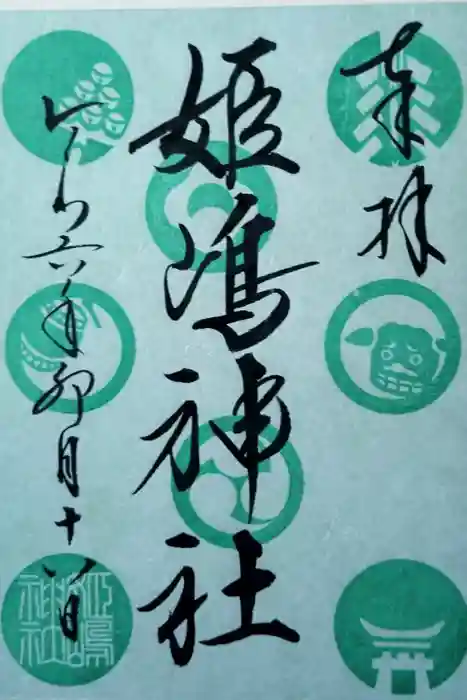 奉拝
姫嶋神社
令和六年卯月十八日
姫嶋神社